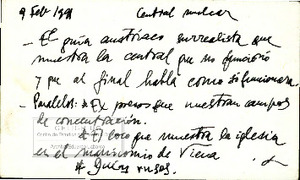 9 Feb/1991 Central nuclear
- El guía austriaco surrealista que
muestra la central que no funcionó
y que al final habla como si funcionara.
- Paralelos: * Ex presos que muestran campos
de concentración.
* El loco que muestra la iglesia
en el manicomio de Viena
* Guías rusos.